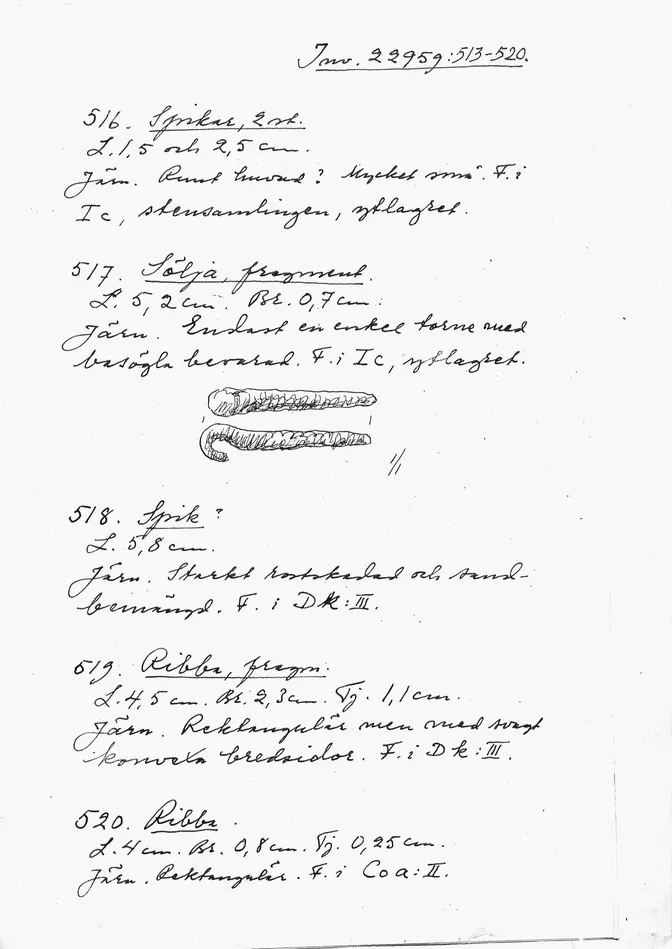 Inv. 22959:513-520.
516. Spikar, 2 st.
L. 1,5 och 2,5 cm.
Järn. Runt huvud? Mycket små. F. i
Ic, stensamlingen, ytlagret.
517. Sölja, fragment.
L. 5,2 cm. Br. 0,7 cm.
Järn. Endast en enkel torne med
basögla bevarad. F. i Ic, ytlagret.
1/1
518. Spik?
L. 5,8 cm.
Järn. Starkt rostskadad och sand-
bemängd. F. i Dk:III.
519. Ribba, fragm.
L. 4,5 cm. Br. 2,3 cm. Tj. 1,1 cm.
Järn. Rektangulär men med svagt
konvexa bredsidor. F. i Dk:III.
520. Ribba.
L. 4 cm. Br. 0,8 cm. Tj. 0,25 cm.
Järn. Rektangulär. F. i Coa:II.